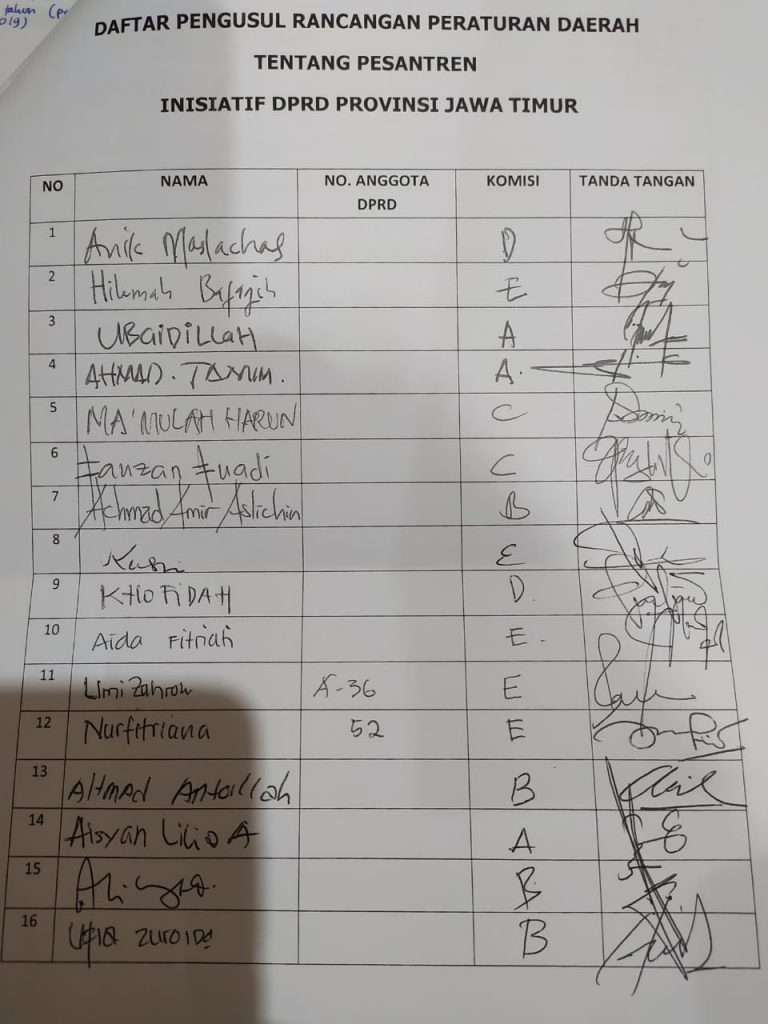 tahun (pr
019)
DAFTAR PENGUSUL RANCANGAN PERATURAN DAERAH
TENTANG PESANTREN
INISIATIF DPRD PROVINSI JAWA TIMUR
NO NAMA NO. ANGGOTA DPRD KOMISI TANDA TANGAN
1 Anik Maslachah D
2 Hikmah Bafaqih E
3 UBAIDILLAH A
4 AHMAD. TAMIM. A.
5 MA'MULAH HARUN C
6 Fauzan Fuadi C
7 Achmad Amir Aslichin B
8 E
9 KHOFIDAH D.
10 Aida Fitriah E.
11 Umi Zahrok A-36 E
12 Nurfitriana 52 E
13 AHMAD B
14 Aisyah Lilia A A
15 B
16 Ufiq ZUROIDA B